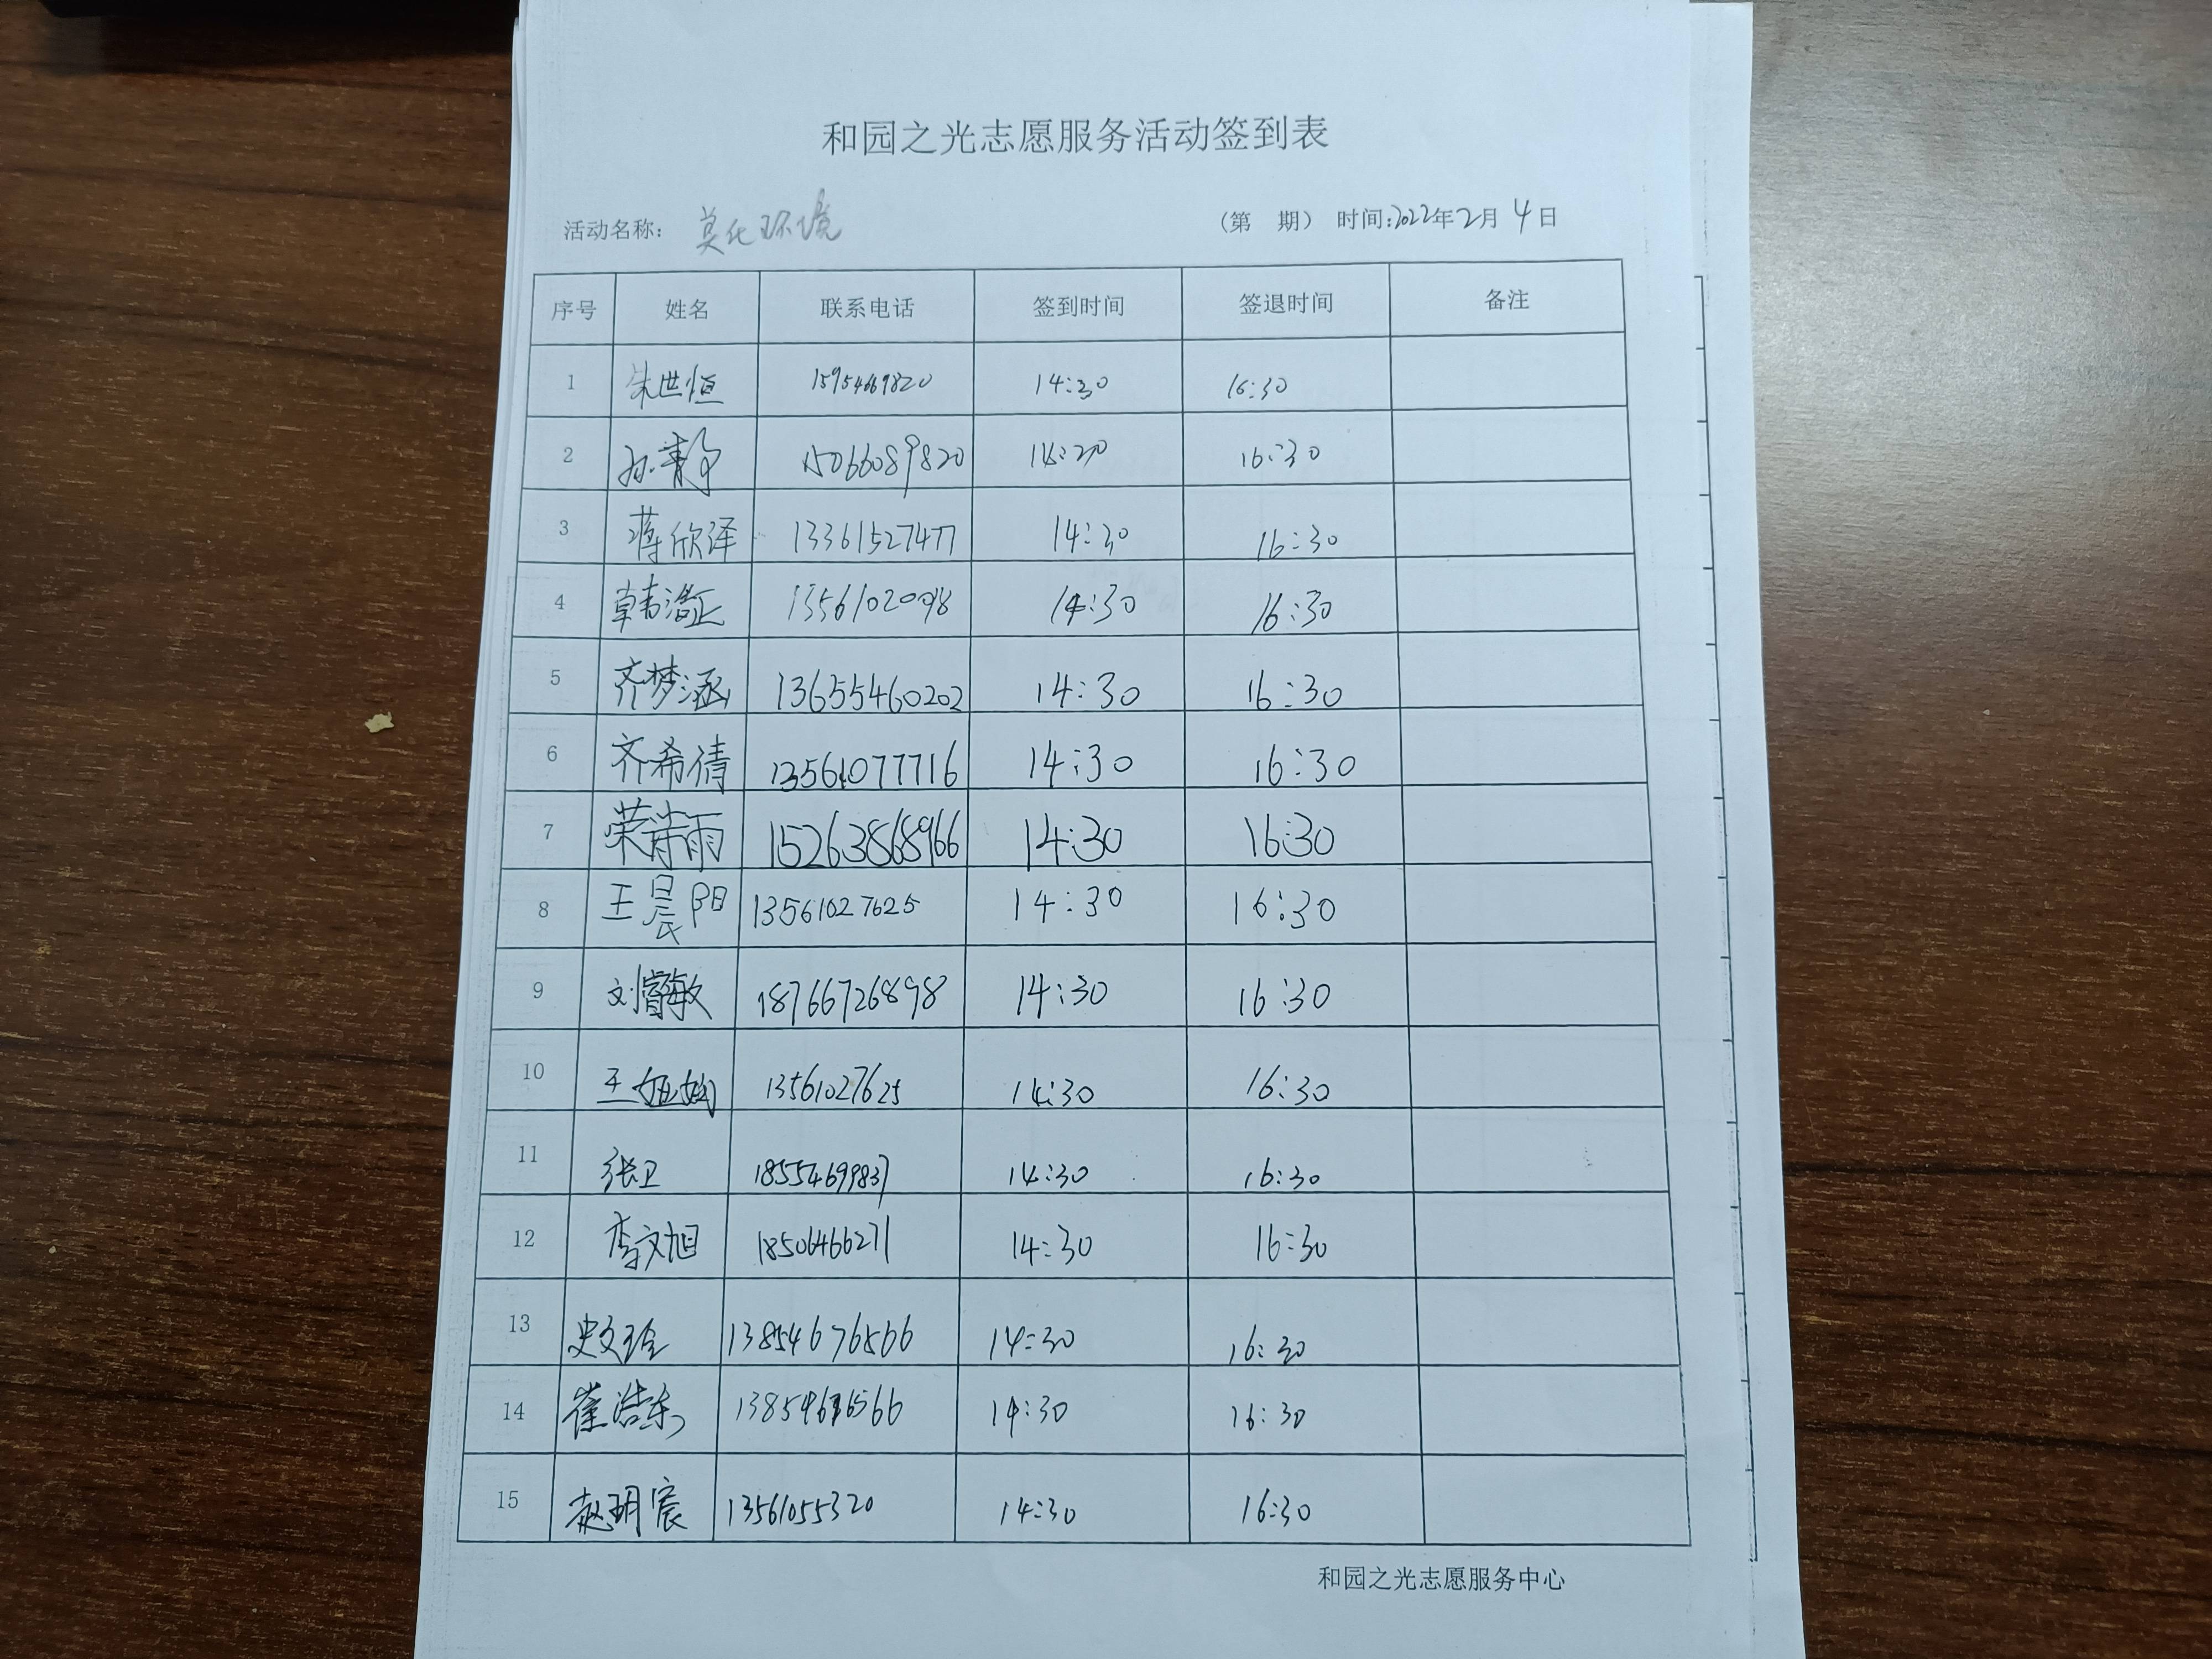 和园之光志愿服务活动签到表
活动名称： 美化环境 （第 期） 时间:2022年2月4日
序号 姓名 联系电话 签到时间 签退时间 备注
1 朱世恒 15954669820 14:30 16:30
2 孙静 15066089820 16:30
3 蒋欣泽 13361527477 14:30 16:30
4 韩浩正 14:30 16:30
5 齐梦涵 13655460202 14:30 16:30
6 齐希倩 13561077716 14:30 16:30
7 荣肖雨 15263868966 14:30 16:30
8 王晨阳 13561027625 14:30 16:30
9 刘睿敏 18766726898 14:30 16:30
10 王 13561027625 14:30 16:30
11 张卫 18554699837 14:30 16:30
12 李文旭 18506466271 14:30 16:30
13 史文玲 13854676566 14:30 16:30
14 崔浩东 13854676566 14:30 16:30
15 赵玥宸 13561055320 14:30 16:30
和园之光志愿服务中心